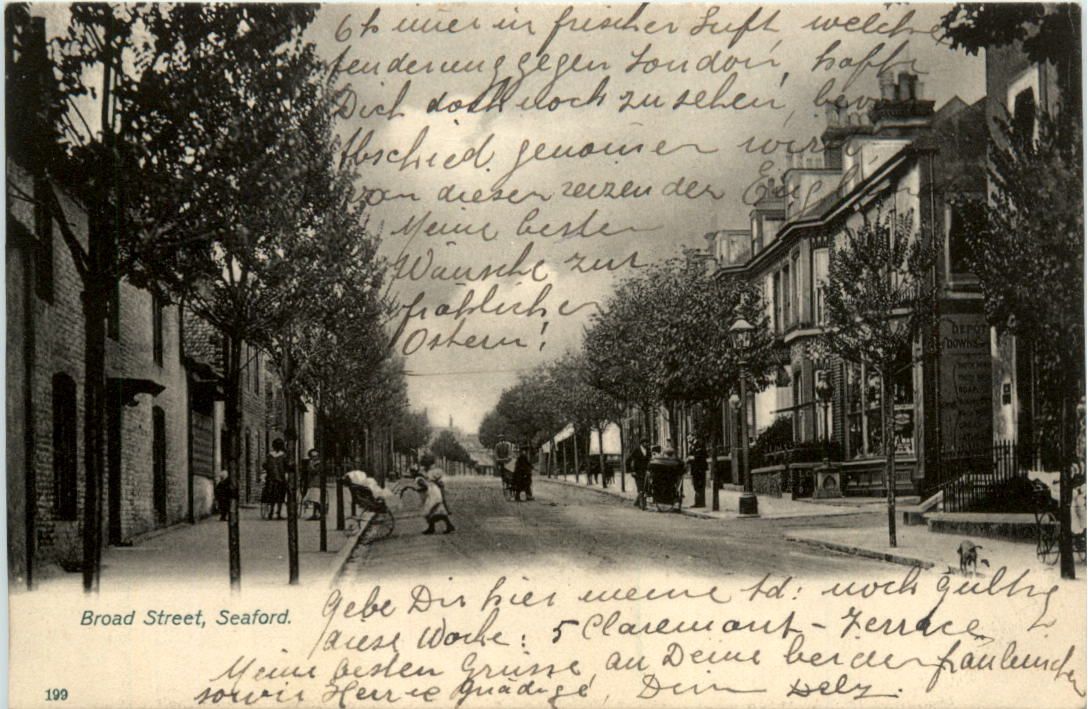 immer in frischer Luft, welche
gegen London, hoffe
Dich doch noch zu sehen, bevor
Abschied genommen wird
von diesen reizenden
Meine besten
Wünsche zur
fröhlichen
Ostern!
DEPOT
DOWNS
Gebe Dir hier meine Ad: noch gültig
diese Woche: 5 Claremont-Terrace
Broad Street, Seaford.
Meine besten Grüsse, an Deine beiden Fräuleinchen
sowie Herr Gnädige, Dein
199